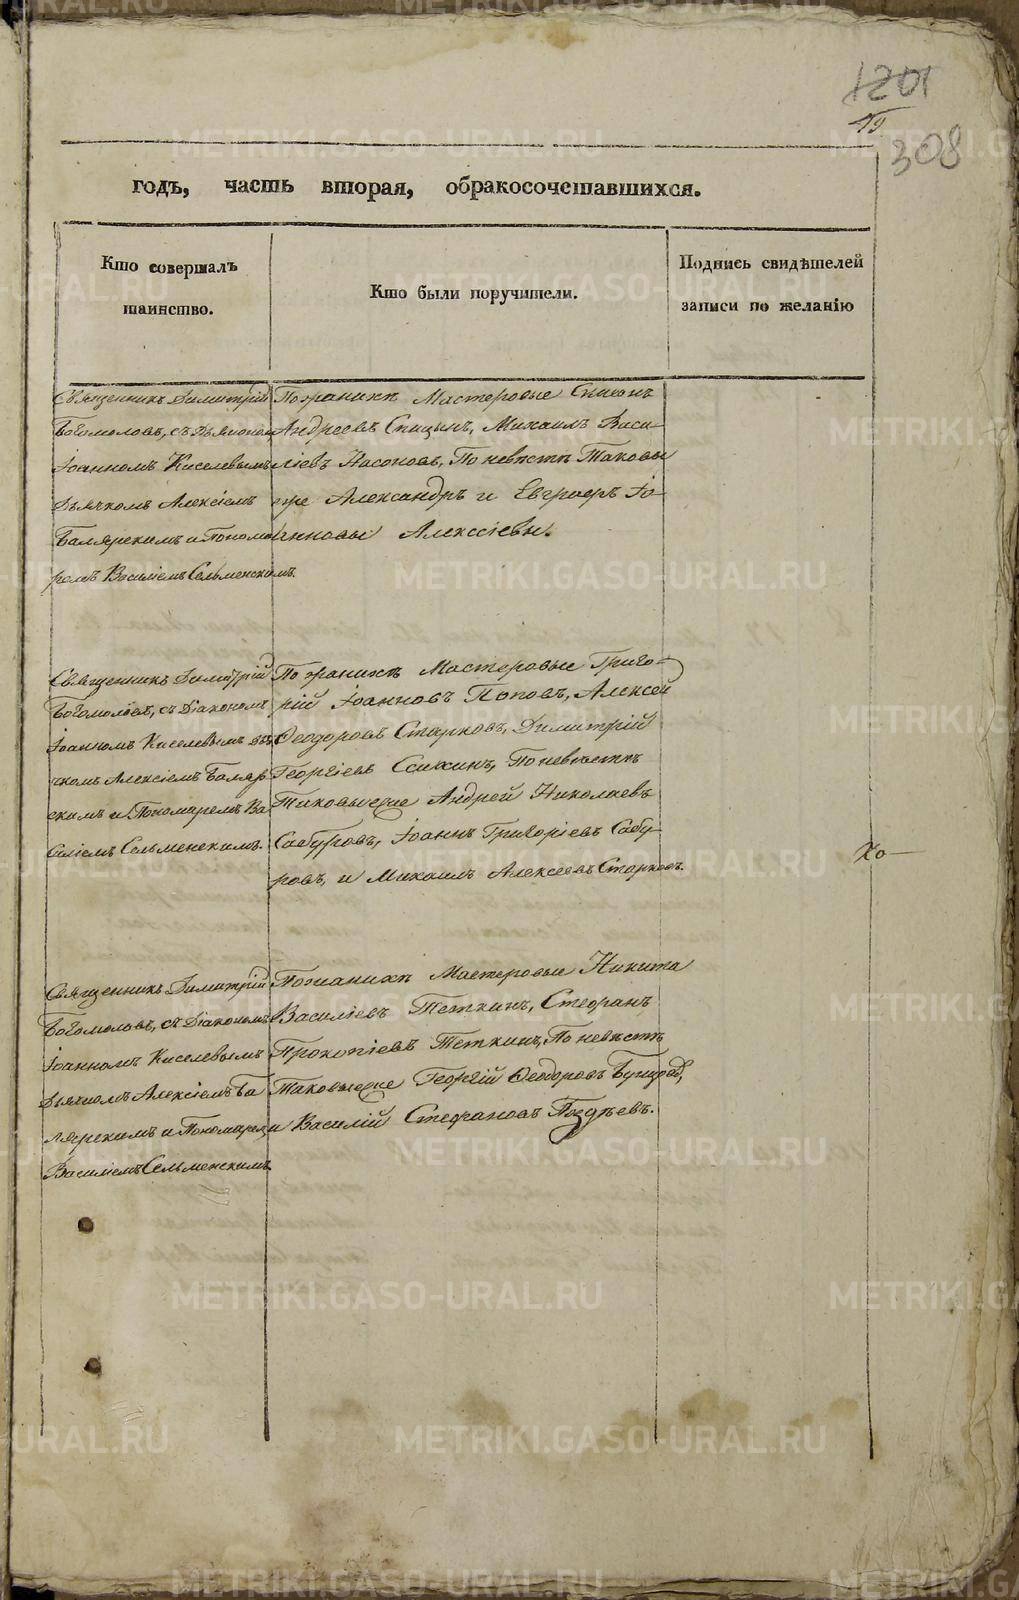 1201
19
308
годъ, часть вторая, обракосочетавшихся.
Кто совершалъ
таинство.
Кто были поручители.
Подпись свидѣтелей
записи по желанію
Священникъ Димитрій
Богомоловъ, съ Діакономъ
Іоанномъ Киселевымъ
Дьячкомъ Алексіемъ
Балярскимъ и Понома
ремъ Василіемъ Сельменскимъ.
По женихѣ Мастеровые Симеонъ
Андреевъ Спицынъ, Михаилъ Васи-
ліевъ Насоновъ, По невѣстѣ Таковы
же Александръ и Евграфъ Іо-
анновы Алексіевы.
Священникъ Димитрій
Богомоловъ, съ Діакономъ
Іоанномъ Киселевымъ Дья
чкомъ Алексіемъ Баляр
скимъ и Пономаремъ Ва
силіемъ Сельменскимъ.
По женихѣ Мастеровые Григо-
рій Іоанновъ Поповъ, Алексей
Феодоровъ Старковъ, Димитрій
Георгіевъ Сажинъ, По невѣстѣ
Таковые же Андрей Николаевъ
Сабуровъ, Іоаннъ Григоріевъ Сабу-
ровъ, и Михаилъ Алексеевъ Старковъ.
Хо-
Священникъ Димитрій
Богомоловъ, съ Діакономъ
Іоанномъ Киселевымъ
Дьячкомъ Алексіемъ Ба
лярскимъ и Пономаремъ
Василіемъ Сельменскимъ
По женихѣ Мастеровые Никита
Василіевъ Теткинъ, Стефанъ
Прокопіевъ Теткинъ, По невѣстѣ
Таковые же Георгій Феодоровъ
и Василій Стефановъ Поздѣевъ.
METRIKI.GASO-URAL.RU